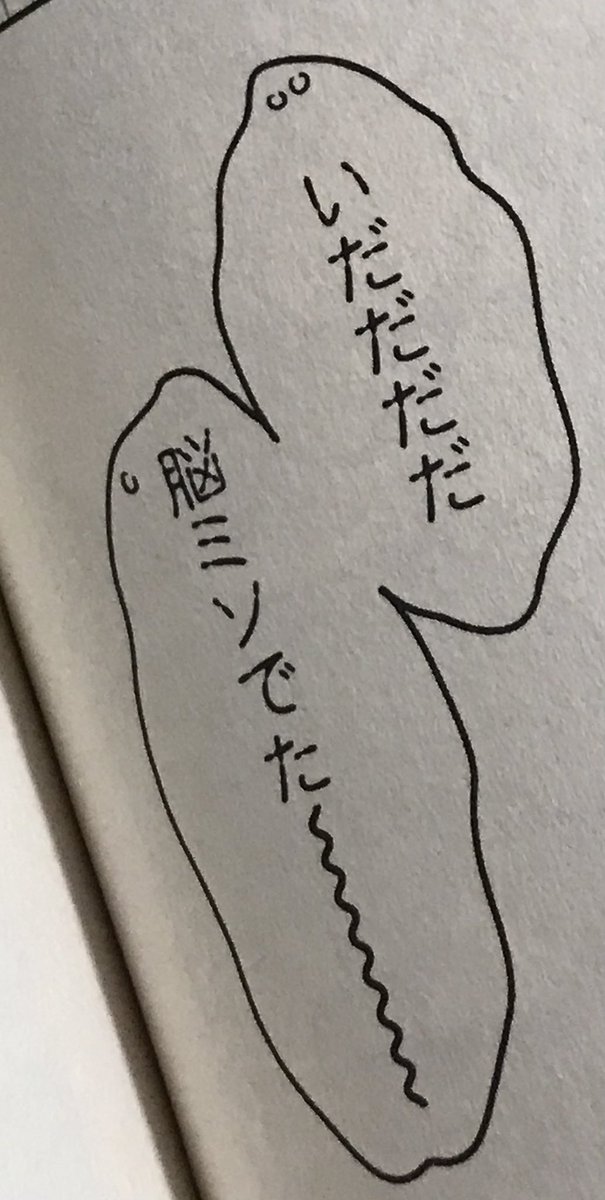 いだだだだ
脳ミソでた〜〜〜〜〜